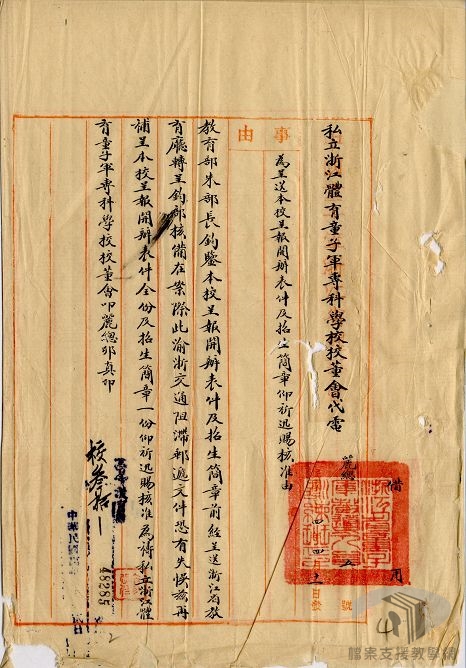 私立浙江體育童子軍專科學校校董會代電
麗總
借用
五號
四月十一日發
事由
為呈送本校呈報開辦表件及招生簡章仰祈迅賜核准由
教育部朱部長鈞鑒本校呈報開辦表件及招生簡章前經呈送浙江省教
育廳轉呈鈞部核備在案際此渝浙交通阻滯郵遞文件恐有失悞茲再
補呈本校呈報開辦表件全份及招生簡章一份仰祈迅賜核准為禱私立浙江體
育童子軍專科學校校董會叩麗總卯真印
48285
中華民國
檔案支援教學網